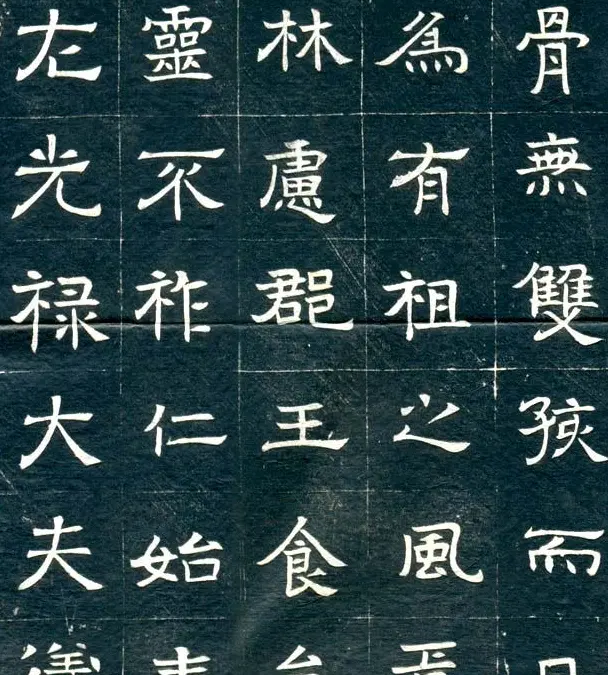 骨無雙孩而
為有祖之風焉
林慮郡王食
靈不祚仁始
左光禄大夫儀